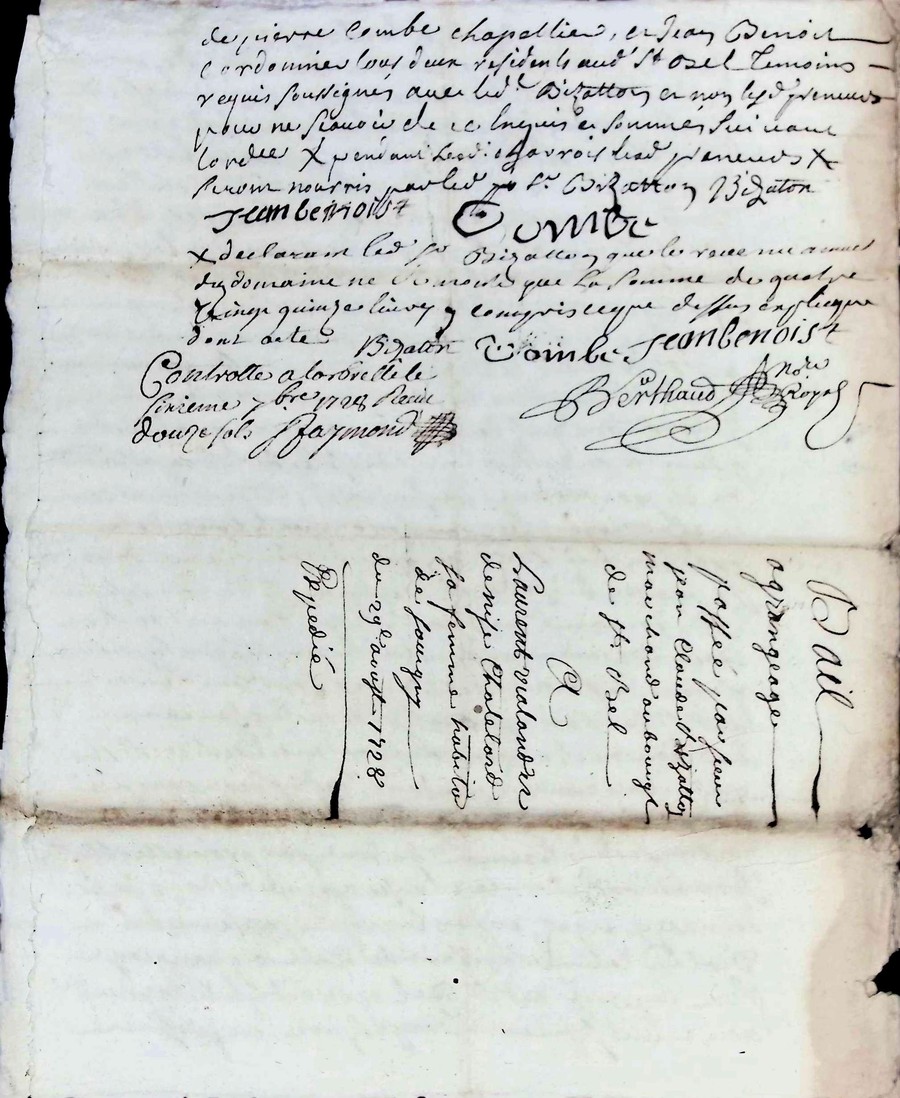 de pierre Combe chapellier, et Jean Benoit
Cordonnier tous deux residents aud' St Bel Temoins
requis soussignés avec led' Bizatton et non lesd' preneurs
pour ne sçavoir de ce enquis et sommes suivant
lordce X pendant lesd: charrois lesd preneurs X
seront nourris par led sr Bizatton Bizaton
Jean benoist Combe
X declarant led sr Bizatton que le revenu annuel
du domaine ne que la somme de quatre
vingt quinze livres y compris ce que dessus explicque
dont acte Bizaton Combe Jean benoist
Controllé a larbrelle le
7bre 1728 Recu
douze sols Raymond
Berthaud Nore Royal
Bail
a grangeage
passé par sieur
jean Claude Bizatton
marchand au bourgt
de st Bel
A
Laurent vialandre
denise Chatelard
sa femme habita
de
du 29e aoust 1728
Expedié